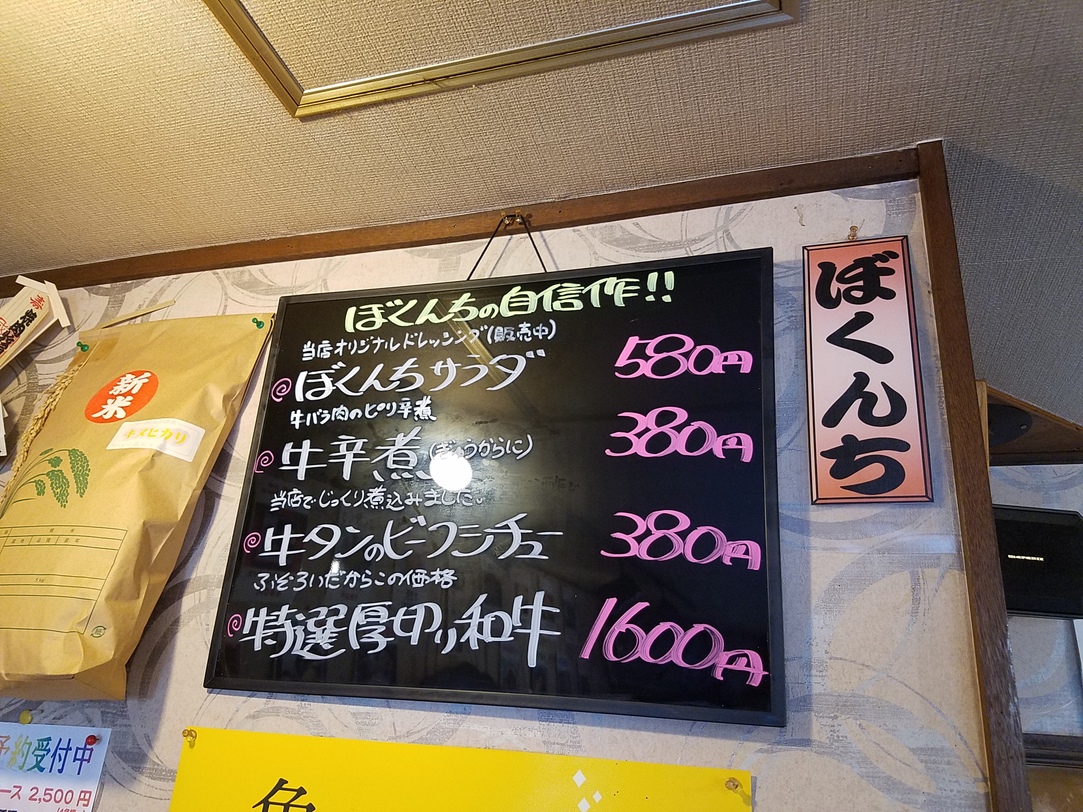 ぼくんちの自信作!!
当店オリジナルドレッシング(販売中)
ぼくんちサラダ 580円
牛バラ肉のピリ辛煮
牛辛煮(ぎゅうからに) 380円
当店でじっくり煮込みました。
牛タンのビーフシチュー 380円
ふぞろいだからこの価格
特選厚切り和牛 1600円
ぼくんち
新米
予約受付中
ース 2,500円